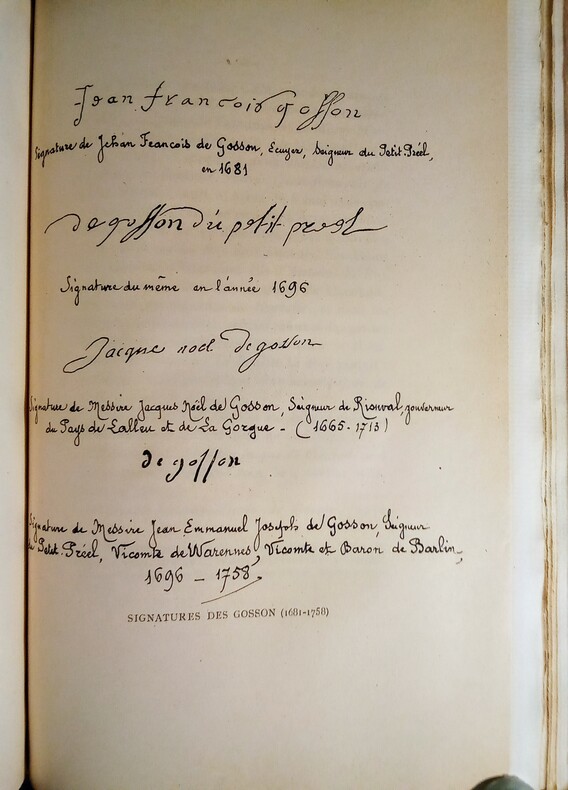 Jean francois gosson
Signature de Jehan Francois de Gosson, Ecuyer, Seigneur du Petit-Préel,
en 1681
de gosson du petit preel
Signature du même en l'année 1696
Jacque noel de gosson
Signature de Messire Jacques Noël de Gosson, Seigneur de Rionval, gouverneur
du Pays de Lalleu et de La Gorgue - (1665-1713)
de gosson
Signature de Messire Jean Emmanuel Joseph de Gosson, Seigneur
Petit-Préel, Vicomte de Warennes, Vicomte et Baron de Barlin,
1696 – 1758,
SIGNATURES DES GOSSON (1681-1758)